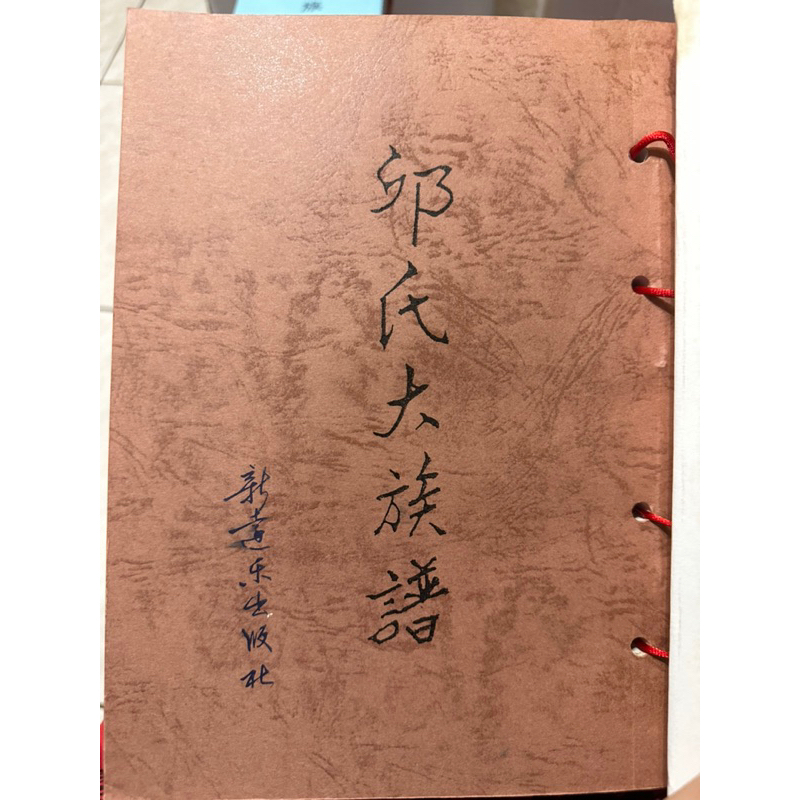 邱氏大族譜
新遠东出版社